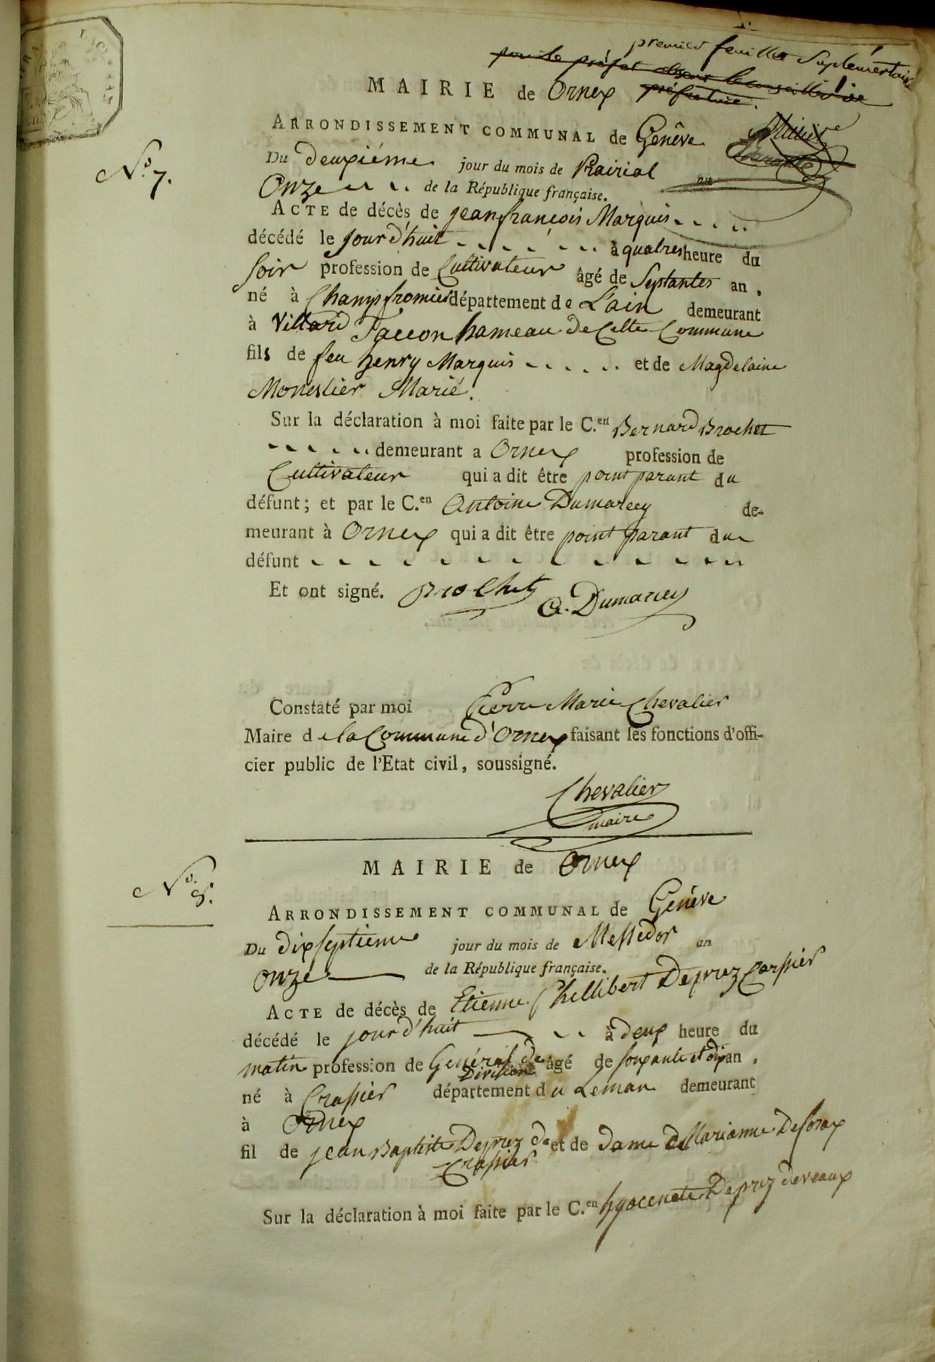 premier feuillet Suplémentaire
pour le préfet
préfecture.
MAIRIE de Ornex
ARRONDISSEMENT COMMUNAL de Genêve
No 7.
Du deuxiéme jour du mois de Prairial an
Onze de la République française.
ACTE de décès de jean françois Marquis
décédé le jour d'huit à quatres heure du
soir profession de Cultivateur âgé de Septantes an,
né à Champfromier département de L'ain demeurant
à Villard Taccon hameau de Cette Commune
fils de feu henry Marquis et de Magdelaine
Monestier Marié.
Sur la déclaration à moi faite par le C.en Bernard Brochet
demeurant a Ornex profession de
Cultivateur qui a dit être point parant du
défunt; et par le C.en Antoine Dumarcey de-
meurant à Ornex qui a dit être point parant du
défunt
Et ont signé. Brochet A. Dumarcey
Constaté par moi Pierre Marie Chevalier
Maire de la Commune d'Ornex faisant les fonctions d'offi-
cier public de l'Etat civil, soussigné.
Chevalier
maire
No. 8.
MAIRIE de Ornex
ARRONDISSEMENT COMMUNAL de Genéve
Du dix septieme jour du mois de Messidor an
Onze de la République française.
ACTE de décès de Etienne Phillibert Deprez Crassier
décédé le jour d'huit à deux heure du
matin profession de Général de
Division âgé de soixante et dix an,
né à Crassier département du Leman demeurant
à Ornex
fil de jean Baptiste Deprez de et de dame Marianne Deforax
Crassier
Sur la déclaration à moi faite par le C.en hyacente Deprez deveaux